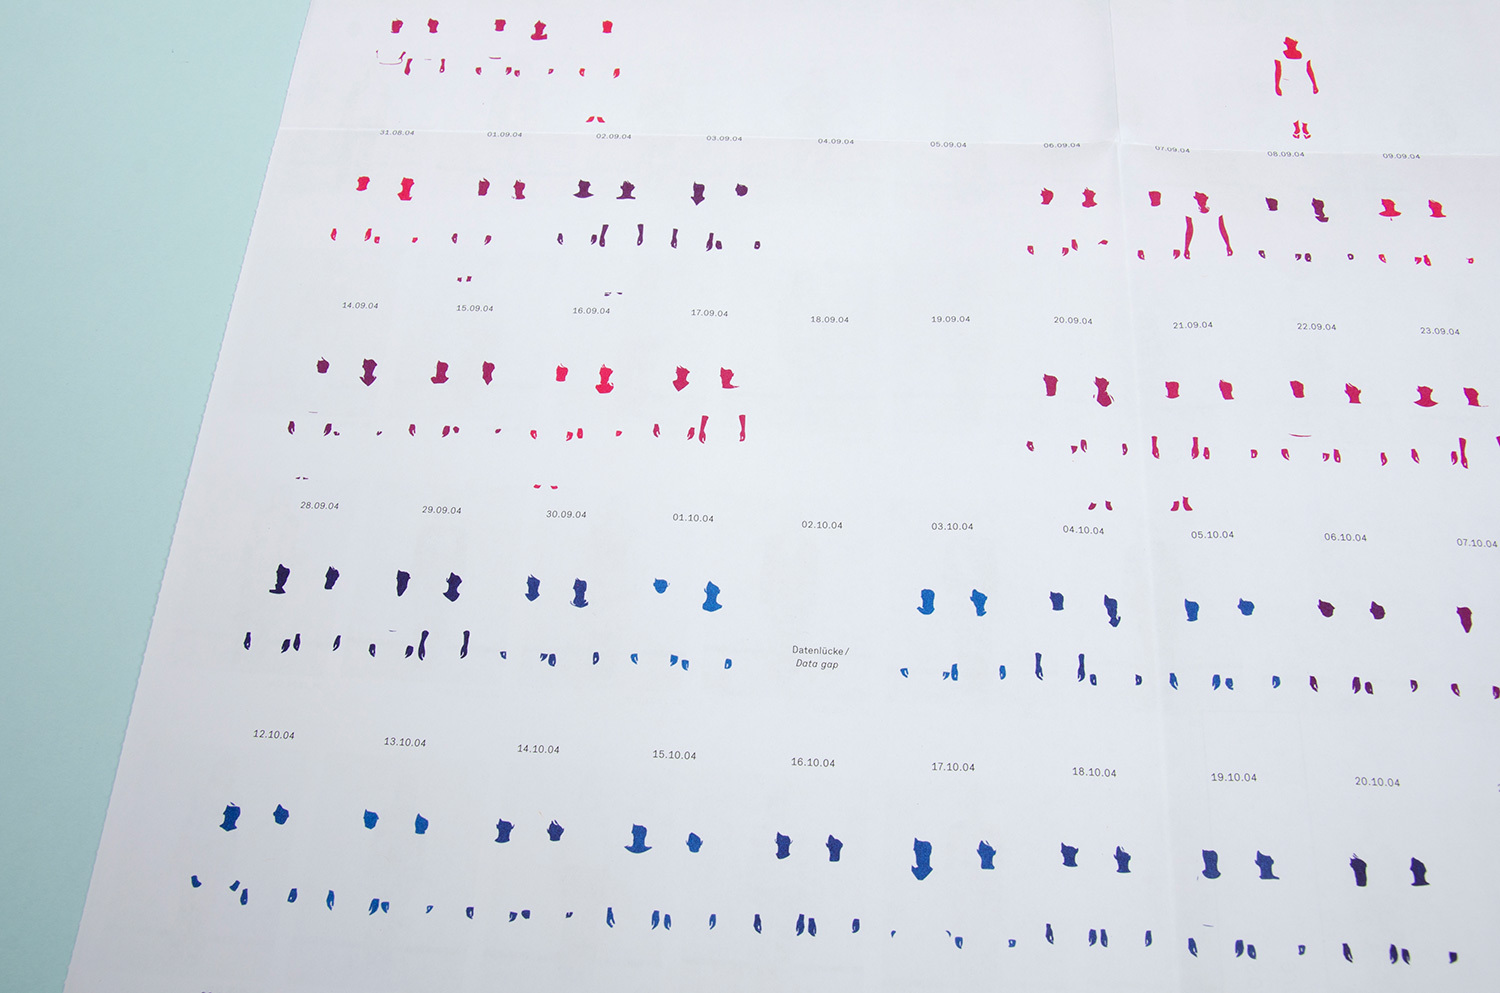 31.08.04 01.09.04 02.09.04 03.09.04 04.09.04 05.09.04 06.09.04 07.09.04 08.09.04 09.09.04
14.09.04 15.09.04 16.09.04 17.09.04 18.09.04 19.09.04 20.09.04 21.09.04 22.09.04 23.09.04
28.09.04 29.09.04 30.09.04 01.10.04 02.10.04 03.10.04 04.10.04 05.10.04 06.10.04 07.10.04
Datenlücke/
Data gap
12.10.04 13.10.04 14.10.04 15.10.04 16.10.04 17.10.04 18.10.04 19.10.04 20.10.04